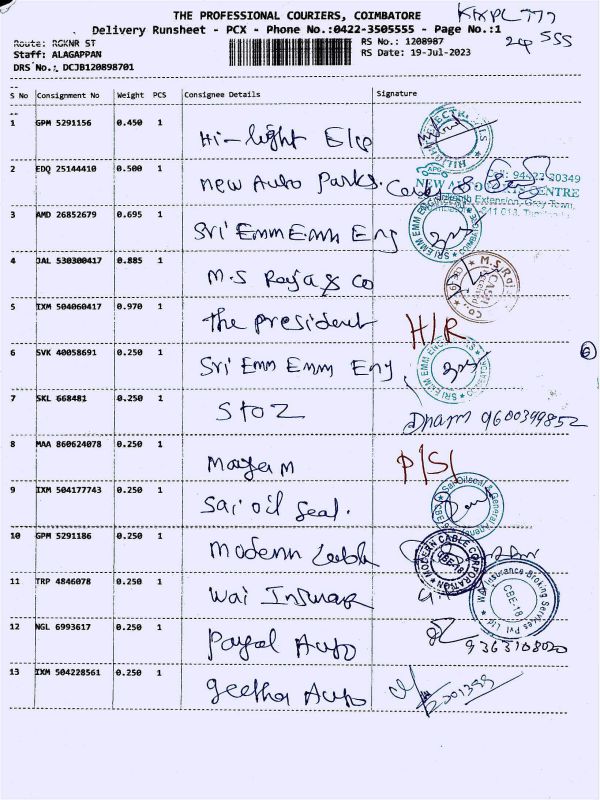 THE PROFESSIONAL COURIERS, COIMBATORE
Delivery Runsheet - PCX - Phone No.:0422-3505555 - Page No.:1
Route: RGKNR ST RS No.: 1208987
Staff: ALAGAPPAN RS Date: 19-Jul-2023
DRS No.: DCJB120898701
555
S No Consignment No Weight PCS Consignee Details Signature
1 GPM 5291156 0.450 1 Hi-light Ele
2 EDQ 25144410 0.500 1 New Auto Parks.
NEW CENTRE
Extension,
3 AMD 26852679 0.695 1 Sri Emm Emm Eng
SRI EMM EMM
4 JAL 530300417 0.885 1 M.S Raja & Co
M.S. Raj
5 IXM 504060417 0.970 1 The president H/R
6 SVK 40058691 0.250 1 Sri Emm Emm Eng
SRI EMM EMM
6
7 SKL 668481 0.250 1 S to Z 9600399852
8 MAA 860624078 0.250 1 P/S/
9 IXM 504177743 0.250 1 Sai oil Seal.
Sai Oilseal & General Agency
10 GPM 5291186 0.250 1 Modern
MODERN CABLE CORPORATION CBE-18
11 TRP 4846078 0.250 1 Wai
Wai Insurance Broking Services Pvt Ltd CBE-18
12 NGL 6993617 0.250 1 Payal Auto 9363108020
13 IXM 504228561 0.250 1 Geetha Auto